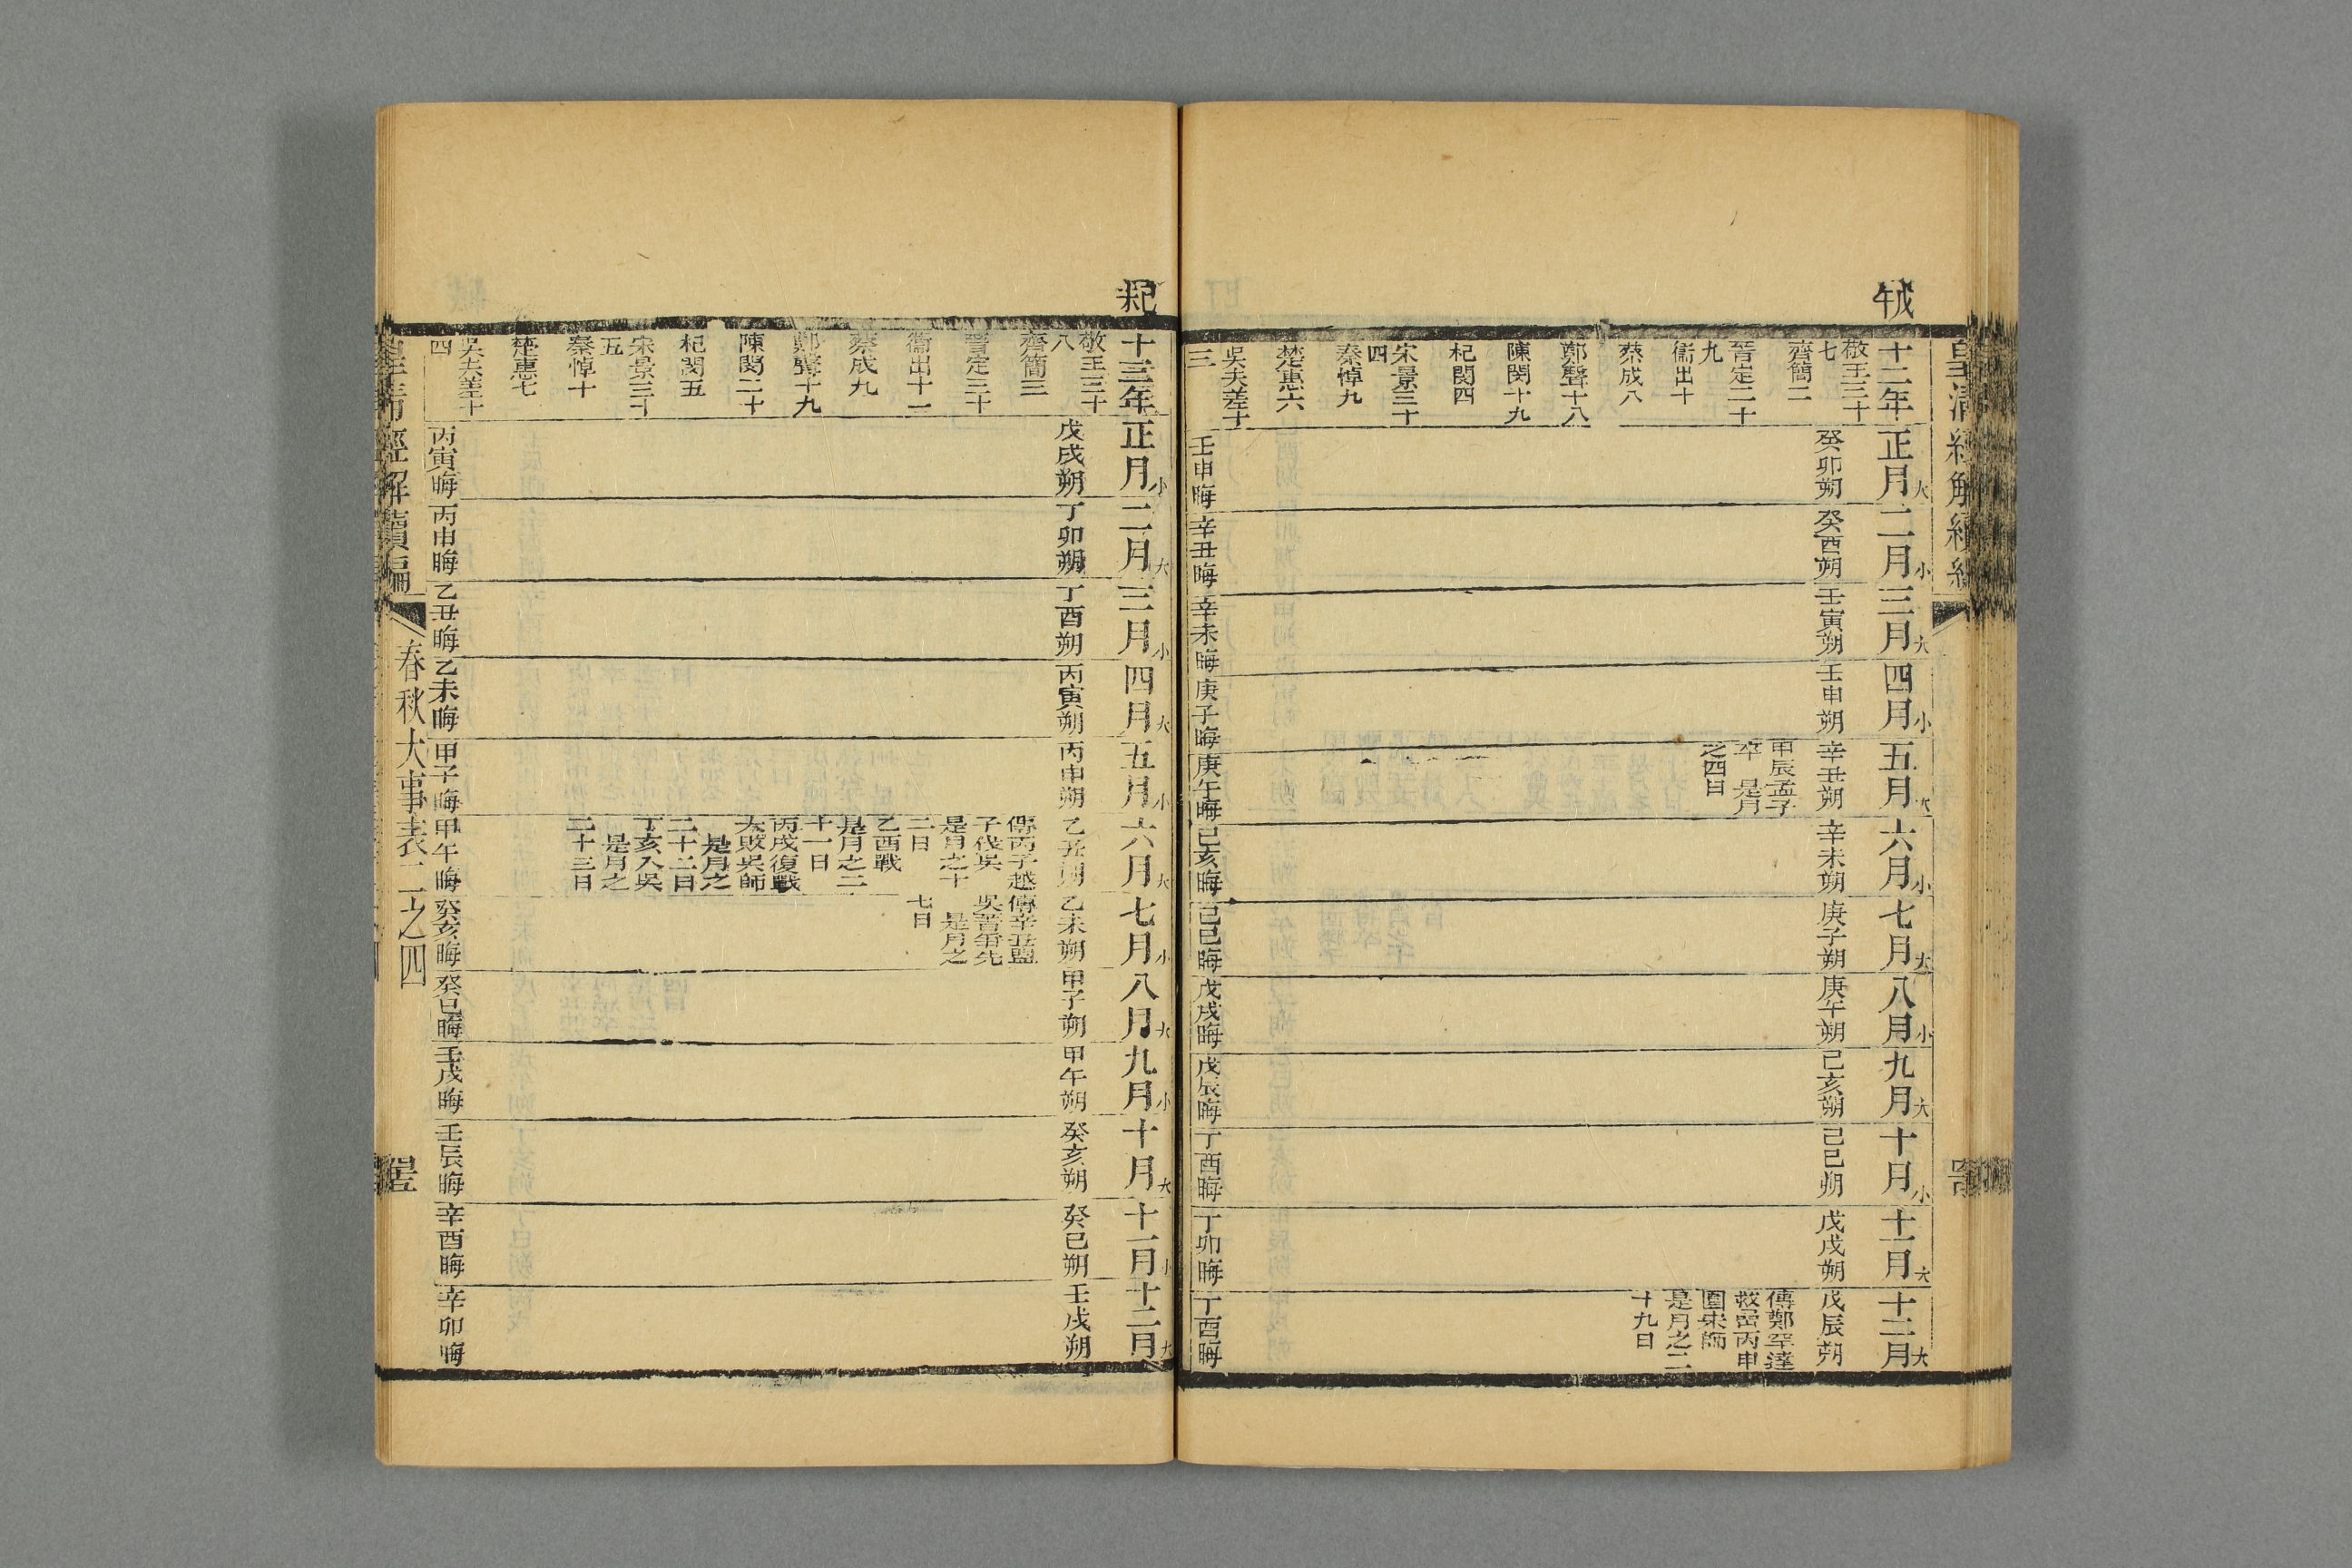 皇清經解續編
戊午
十二年
敬王三十
七
齊簡二
晉定二十
九
衞出十
蔡成八
鄭聲十八
陳閔十九
杞閔四
宋景三十
四
秦悼九
楚惠六
吳夫差十
三
正月大
癸卯朔
壬申晦
二月小
癸酉朔
辛丑晦
三月大
壬寅朔
辛未晦
四月小
壬申朔
庚子晦
五月大
辛丑朔
甲辰孟子
卒 是月
之四日
庚午晦
六月小
辛未朔
己亥晦
七月大
庚子朔
己巳晦
八月小
庚午朔
戊戌晦
九月大
己亥朔
戊辰晦
十月小
己巳朔
丁酉晦
十一月大
戊戌朔
丁卯晦
十二月大
戊辰朔
傳鄭罕達
救嵒丙申
圍宋師
是月之二
十九日
丁酉晦
己未
十三年
敬王三十
八
齊簡三
晉定三十
衞出十一
蔡成九
鄭聲十九
陳閔二十
杞閔五
宋景三十
五
秦悼十
楚惠七
吳夫差十
四
正月小
戊戌朔
丙寅晦
二月大
丁卯朔
丙申晦
三月小
丁酉朔
乙丑晦
四月大
丙寅朔
乙未晦
五月小
丙申朔
甲子晦
六月大
乙丑朔
傳丙子越
子伐吳
是月之十
二日
乙酉戰
是月之二
十一日
丙戌復戰
大敗吳師
是月之
二十二日
丁亥入吳
是月之
二十三日
甲午晦
七月小
乙未朔
傳辛丑盟
吳晉爭先
是月之
七日
癸亥晦
八月大
甲子朔
癸巳晦
九月小
甲午朔
壬戌晦
十月大
癸亥朔
壬辰晦
十一月小
癸巳朔
辛酉晦
十二月大
壬戌朔
辛卯晦
皇清經解續編
春秋大事表二之四